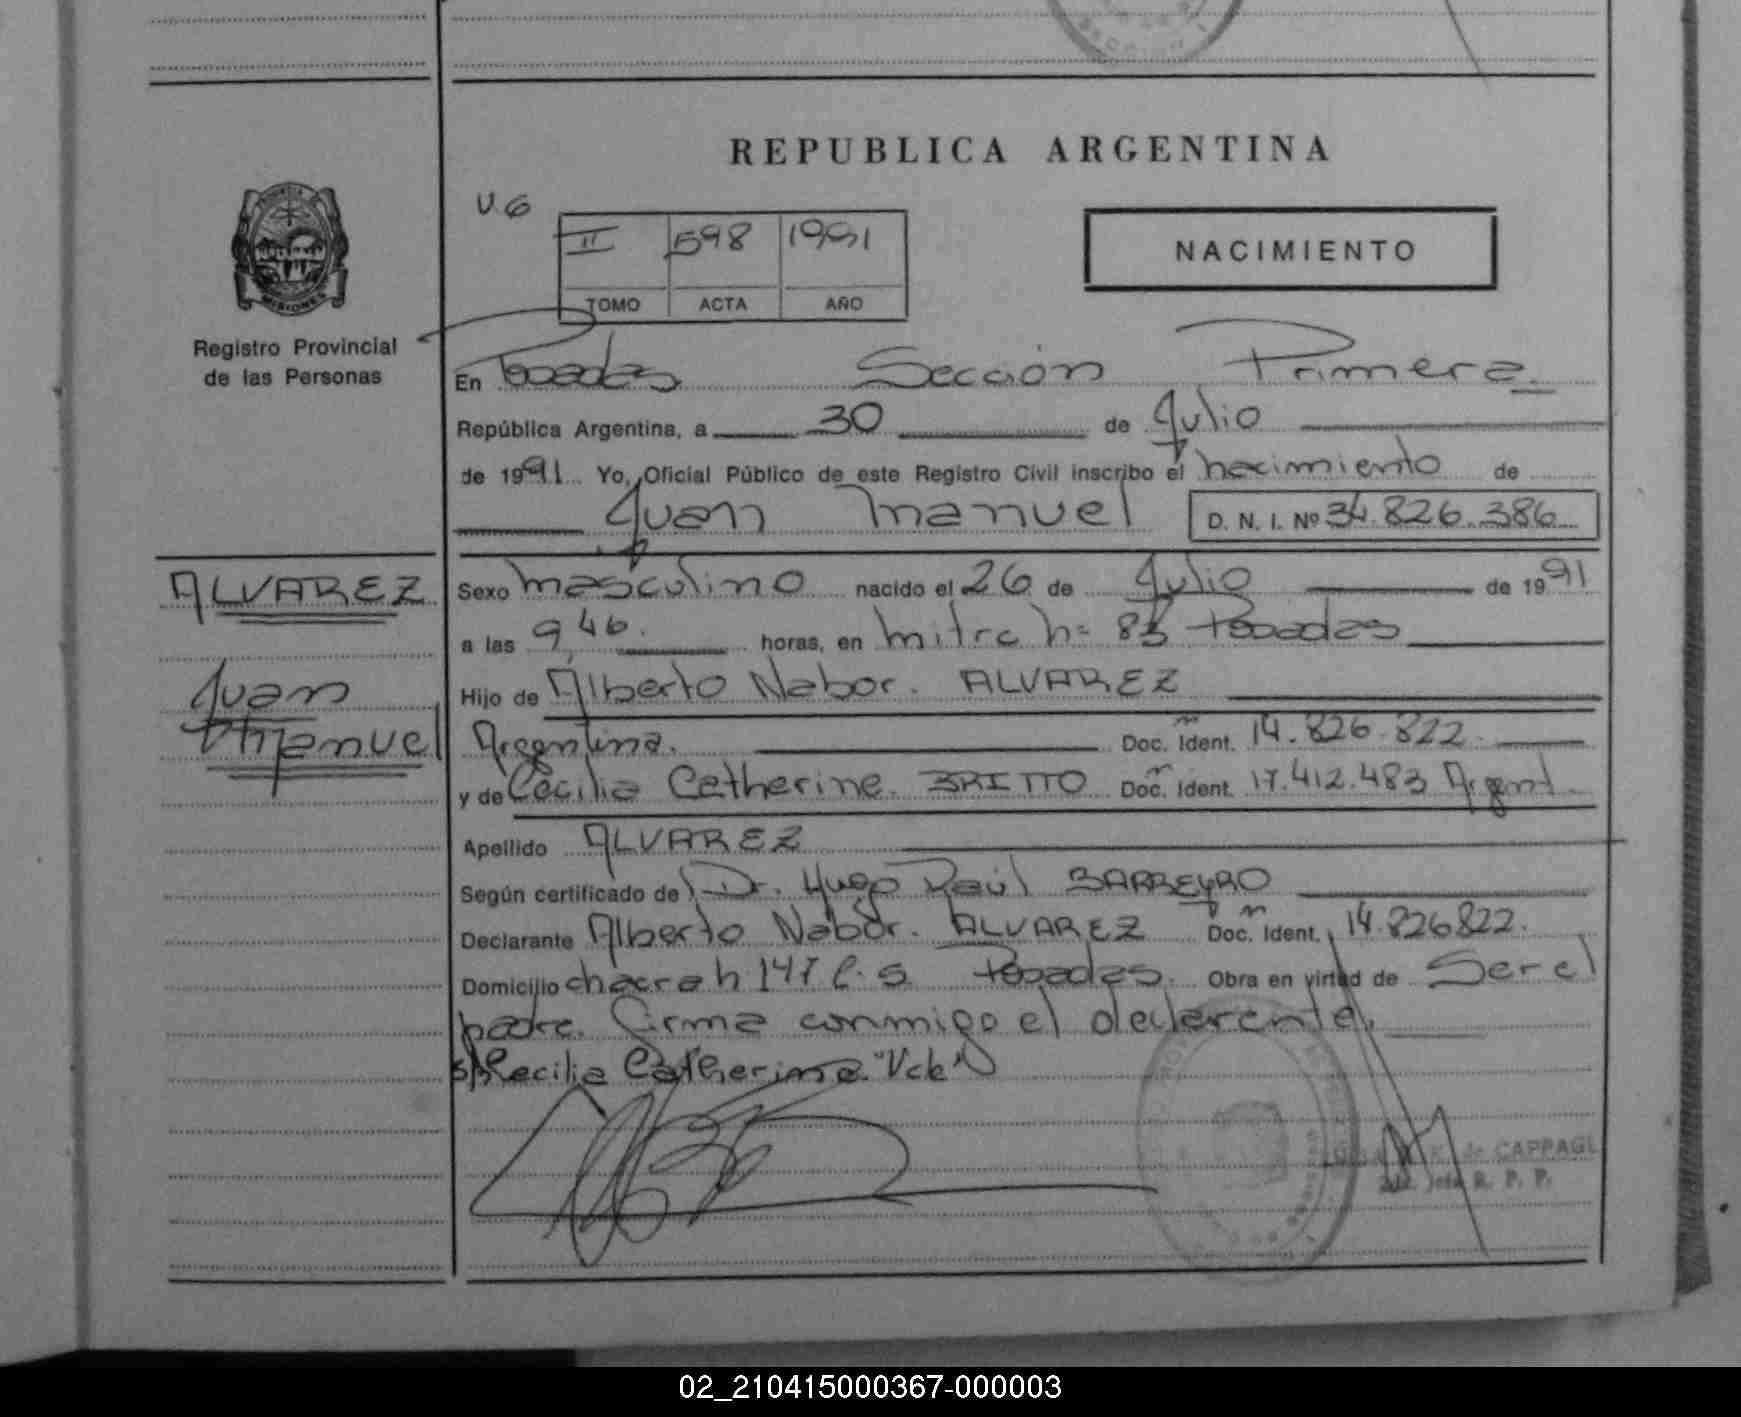 REPUBLICA ARGENTINA
U.6
II 598 1991
TOMO ACTA AÑO
NACIMIENTO
MISIONES
Registro Provincial
de las Personas
En Posadas Sección Primera
República Argentina, a 30 de Julio
de 1991 Yo, Oficial Público de este Registro Civil inscribo el nacimiento de
Juan Manuel D. N. I. Nº 34.826.386
ALVAREZ
Juan
Manuel
Sexo masculino nacido el 26 de Julio de 1991
a las 9,46. horas, en mitre nº 83 Posadas
Hijo de Alberto Nabor. ALVAREZ
Argentina. Doc. Ident. 14.826.822
y de Cecilia Catherine. BRITTO Doc. Ident. 17.412.483 Argent.
Apellido ALVAREZ
Según certificado de Dr. Hugo Raúl BARREYRO
Declarante Alberto Nabor. ALVAREZ Doc. Ident. 14.826822.
Domicilio chacra h 147 C. S. Posadas. Obra en virtud de Ser el
padre. Firma conmigo el declarante.
S/R Cecilia Catherine "Vale"
de CAPPAGL
Jefe R. P. P.
02_210415000367-000003